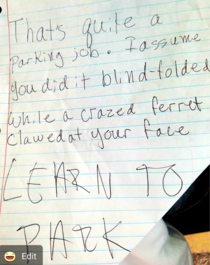 Thats quite a
parking job. I assume
you did it blind-folded
while a crazed ferret
clawed at your face
LEARN TO
PARK
Edit